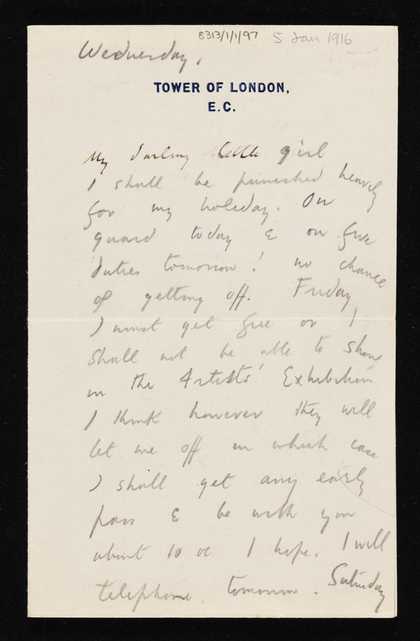 8313/1/1/97 5 Jan 1916
Wednesday,
TOWER OF LONDON,
E.C.
My darling little girl
I shall be punished heavily
for my holiday. On
guard today & on fire
duties tomorrow! no chance
of getting off. Friday,
I must get free or I
shall not be able to show
in the Artists' Exhibition
I think however they will
let me off in which case
I shall get any early
pass & be with you
about 10 oc I hope. I will
telephone tomorrow. Saturday